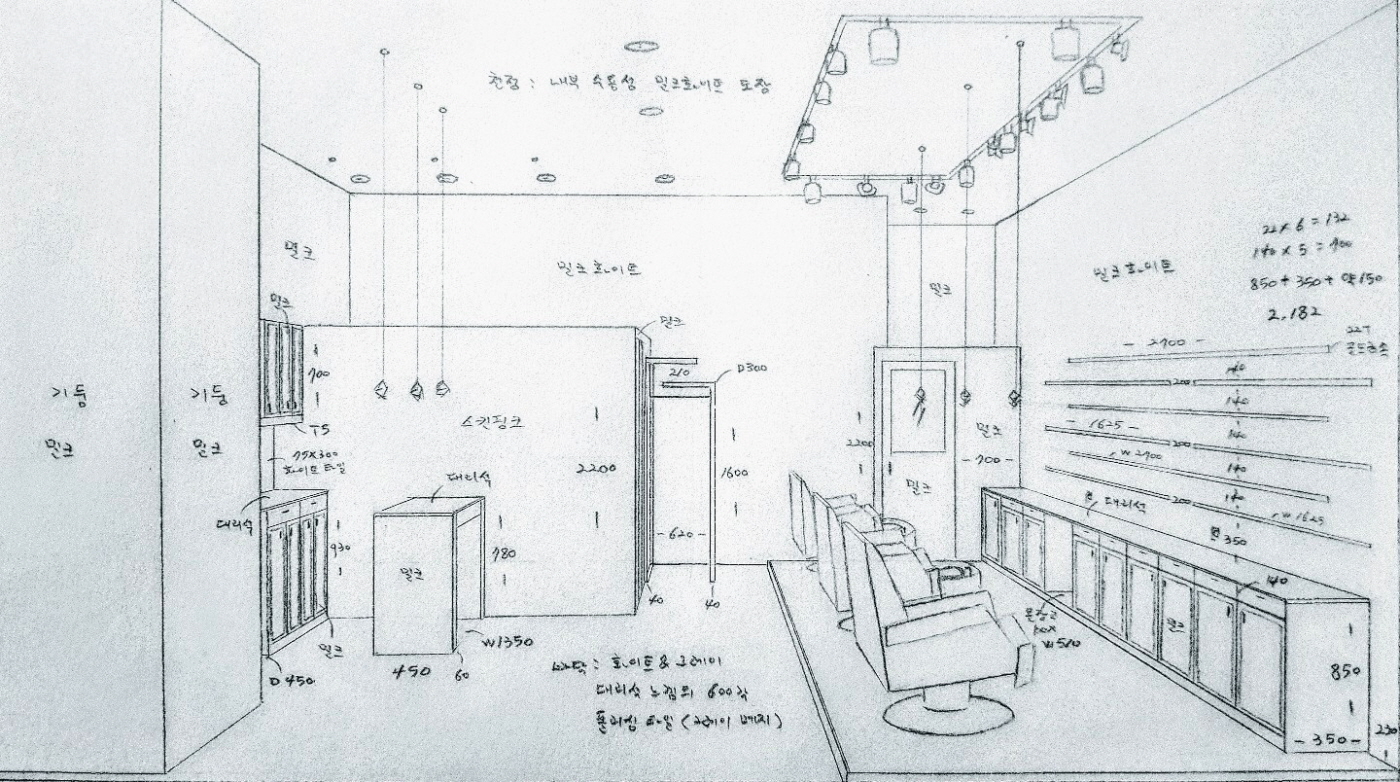 천정 : 내부 수용성 밀크화이트 도장
밀크
밀크화이트
밀크
밀크
밀크
기둥
밀크
기둥
밀크
700
T5
75X300
화이트 타일
대리석
930
밀크
D 450
스킨핑크
대리석
밀크
780
W1350
450
60
2200
210
D300
1600
-620-
40
40
2200
밀크
밀크
-700-
밀크화이트
22 x 6 = 132
140 x 5 = 700
850 + 350 + 약150
2,182
22T
- 2700 -
140
200
140
- 1625 -
140
200
W 2700
140
140
200
W 1625
350
대리석
140
온장고
box
W 510
밀크
850
-350-
230
바닥 : 화이트 & 그레이
대리석 느낌의 600각
폴리싱 타일 (그레이 메지)